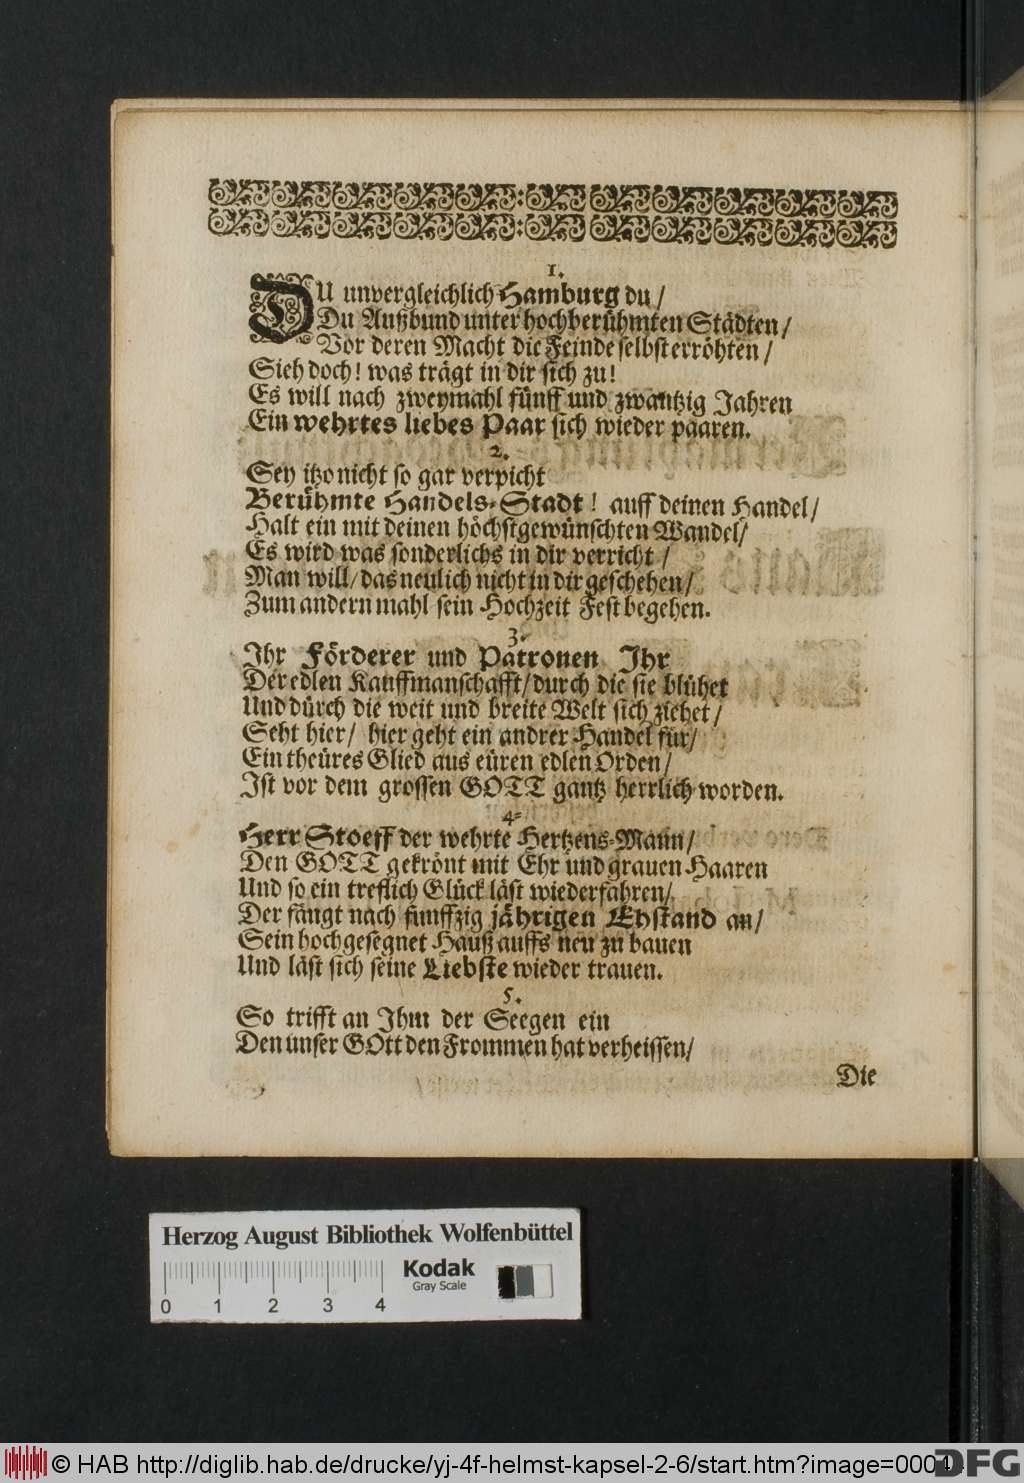 1.
DU unvergleichlich Hamburg du /
Du Außbund unter hochberühmten Städten /
Vor deren Macht die Feinde selbst erröhten /
Sieh doch! was trägt in dir sich zu!
Es will nach zweymahl fünff und zwantzig Jahren
Ein wehrtes liebes Paar sich wieder paaren.
2.
Sey itzo nicht so gar verpicht
Berühmte Handels-Stadt! auff deinen Handel /
Halt ein mit deinen höchstgewünschten Wandel /
Es wird was sonderlichs in dir verricht /
Man will / das neulich nicht in dir geschehen /
Zum andern mahl sein Hochzeit Fest begehen.
3.
Ihr Förderer und Patronen Ihr
Der edlen Kauffmanschafft / durch die sie blühet
Und dürch die weit und breite Welt sich ziehet /
Seht hier / hier geht ein andrer Handel für /
Ein theüres Glied aus eüren edlen Orden /
Ist vor dem grossen GOTT gantz herrlich worden.
4.
Herr Stoeff der wehrte Hertzens-Mann /
Den GOTT gekrönt mit Ehr und grauen Haaren
Und so ein treflich Glück läst wiederfahren /
Der fängt nach funffzig jährigen Ehstand an /
Sein hochgesegnet Hauß auffs neu zu bauen
Und läst sich seine Liebste wieder trauen.
5.
So trifft an Ihm der Seegen ein
Den unser GOtt den Frommen hat verheissen /
Die
Herzog August Bibliothek Wolfenbüttel
Kodak
Gray Scale
0 1 2 3 4
© HAB http://diglib.hab.de/drucke/yj-4f-helmst-kapsel-2-6/start.htm?image=0004
DFG